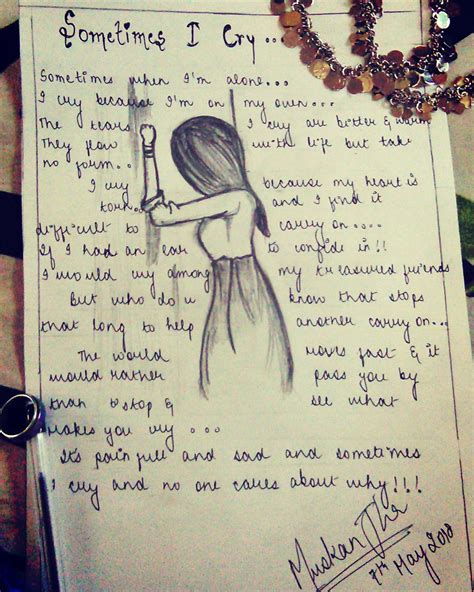 Sometimes I Cry...
Sometimes when I'm alone...
I cry because I'm on my own...
The tears I cry are bitter & warm
They flow with life but take
no form..
I cry because my heart is
torn.. and I find it
difficult to carry on....
If I had an ear to confide in!!
I would cry among my treasured friends
But who do u know that stops
that long to help another carry on...
The world moves fast & it
would rather pass you by
than to stop & see what
makes you cry ...
It's painfull and sad and sometimes
I cry and no one cares about why!!!
Muskan
7th May 2010